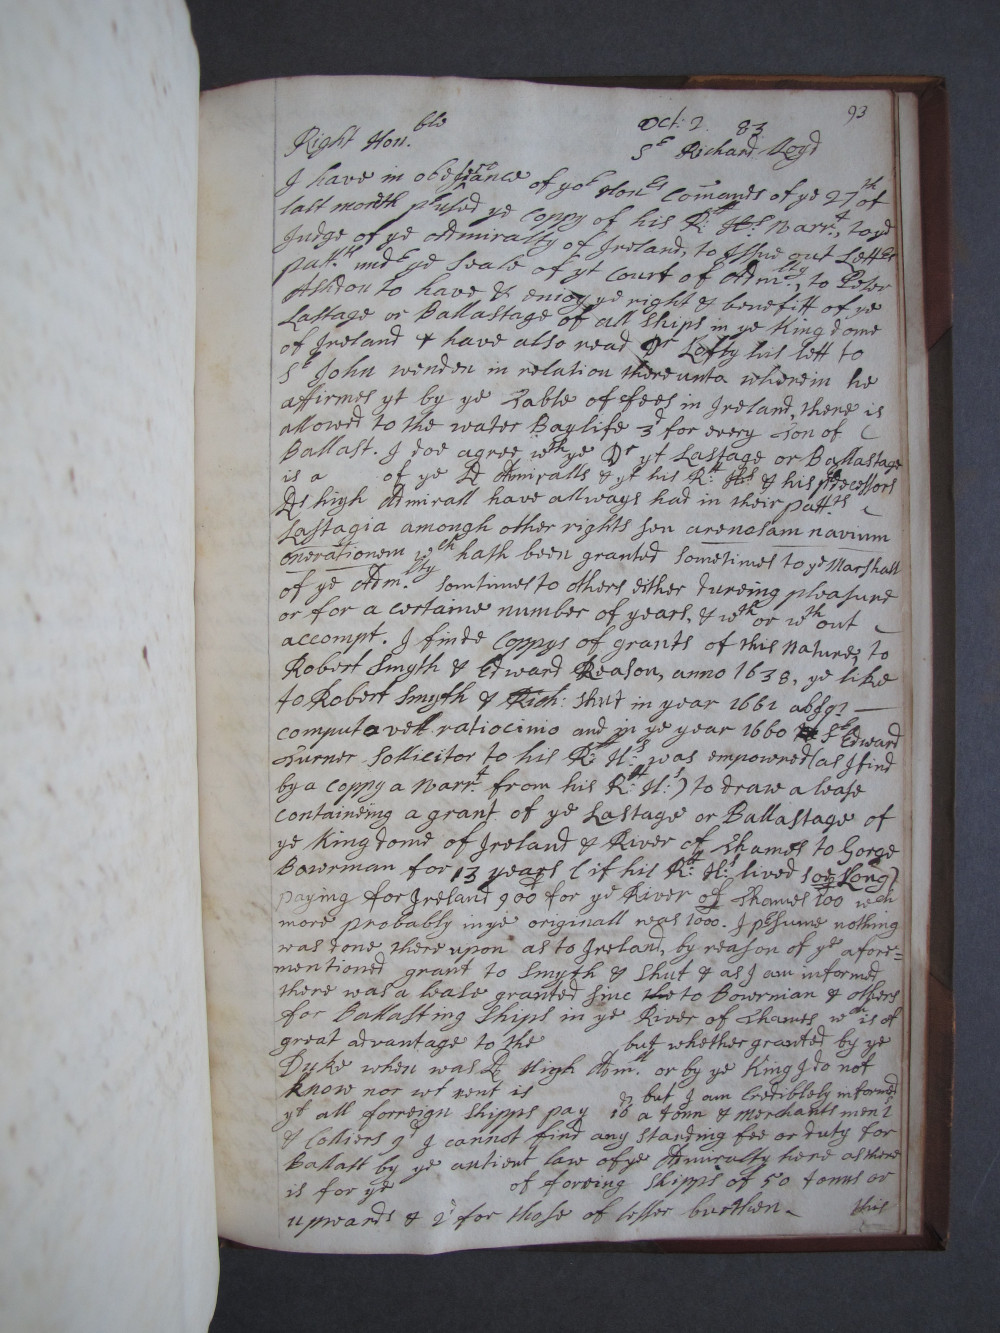 93
Oct: 2. 83
Right Hon.ble Sr Richard Loyd
I have in obedience of yor Honrs Comands of ye 27th of
last month prused ye Coppy of his R: Hs Warrt, to ye
Judge of ye Admiralty of Ireland, to Issue out Letters
Patt.ts undr ye Seale of yt Court of Adm.lty, to Peter
to have & enjoy ye right & benefitt of ye
Lastage or Ballastage of all Ships in ye King dome
of Ireland & have also read Dr Lofty his lett to
Sr John wenden in relation thereunto wherein he
affirmes yt by ye Table of ffees in Ireland, there is
allowed to the water Baylife 3d for every Ton of
Ballast. I doe agree wth ye Dr yt Lastage or Ballastage
is a of ye Ld Admiralls & yt his R: Hs & his prdecessors
Lds high Admirall have allways had in their patt.ts
Lastagia amongh other rights seu arenasam navium
onerationem wch hath been granted sometimes to ye Marshall
of ye Adm.lty somtimes to others either dureing pleasure
or for a certaine number of years, & wth or wthout
accompt. I finde Coppys of grants of this nature, to
Robert Smyth & Edward Reason, anno 1638, ye like
to Robert Smyth & Rich: Shut in year 1661 absq
computo vell ratiocinio and in ye year 1660 Sr Edward
Turner Sollicitor to his R: Hs was empowered (as I find
by a Coppy a Warrt from his R: Hs) to draw a lease
containeing a grant of ye Lastage or Ballastage of
ye King dome of Ireland & River of Thames to Gorge
Bowerman for 13 years (if his R: Hs lived soe Long)
paying for Ireland 900 for ye River of Thames 100 wch
more probably in ye originall was 1000. I prsume nothing
was done there upon as to Ireland, by reason of ye afore=
mentioned grant to Smyth & Shut & as I am informed
there was a lease granted sinc to Bowrman & others
for Ballasting Ships in ye River of Thames wch is of
great advantage to the but whether granted by ye
Dyke when was Ld High Adm.ll or by ye King I do not
know nor wt rent is but I am Crediblely informed
yt all forreign Shipps pay a tonn & Merchants men
& Colliers I cannot find any Standing fee or duty for
Ballast by ye antient law of ye Admiralty here as there
is for ye of foreing Shipps of 50 tonns or
upwards & 2d for those of lesser burthen.
this